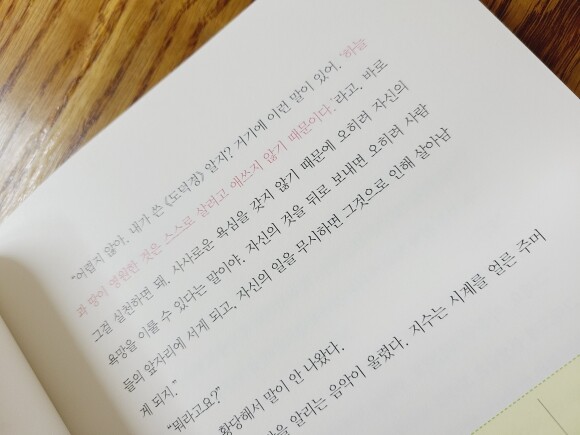 “어렵지 않아. 내가 쓴 《도덕경》 알지? 거기에 이런 말이 있어. ‘하늘
과 땅이 영원한 것은 스스로 살려고 애쓰지 않기 때문이다.’라고. 바로
그걸 실천하면 돼. 사사로운 욕심을 갖지 않기 때문에 오히려 자신의
욕망을 이룰 수 있다는 말이야. 자신의 것을 뒤로 보내면 오히려 사람
들의 앞자리에 서게 되고, 자신의 일을 무시하면 그것으로 인해 살아남
게 되지.”
“뭐라고요?”
황당해서 말이 안 나왔다.
을 알리는 음악이 울렸다. 지수는 시계를 얼른 주머